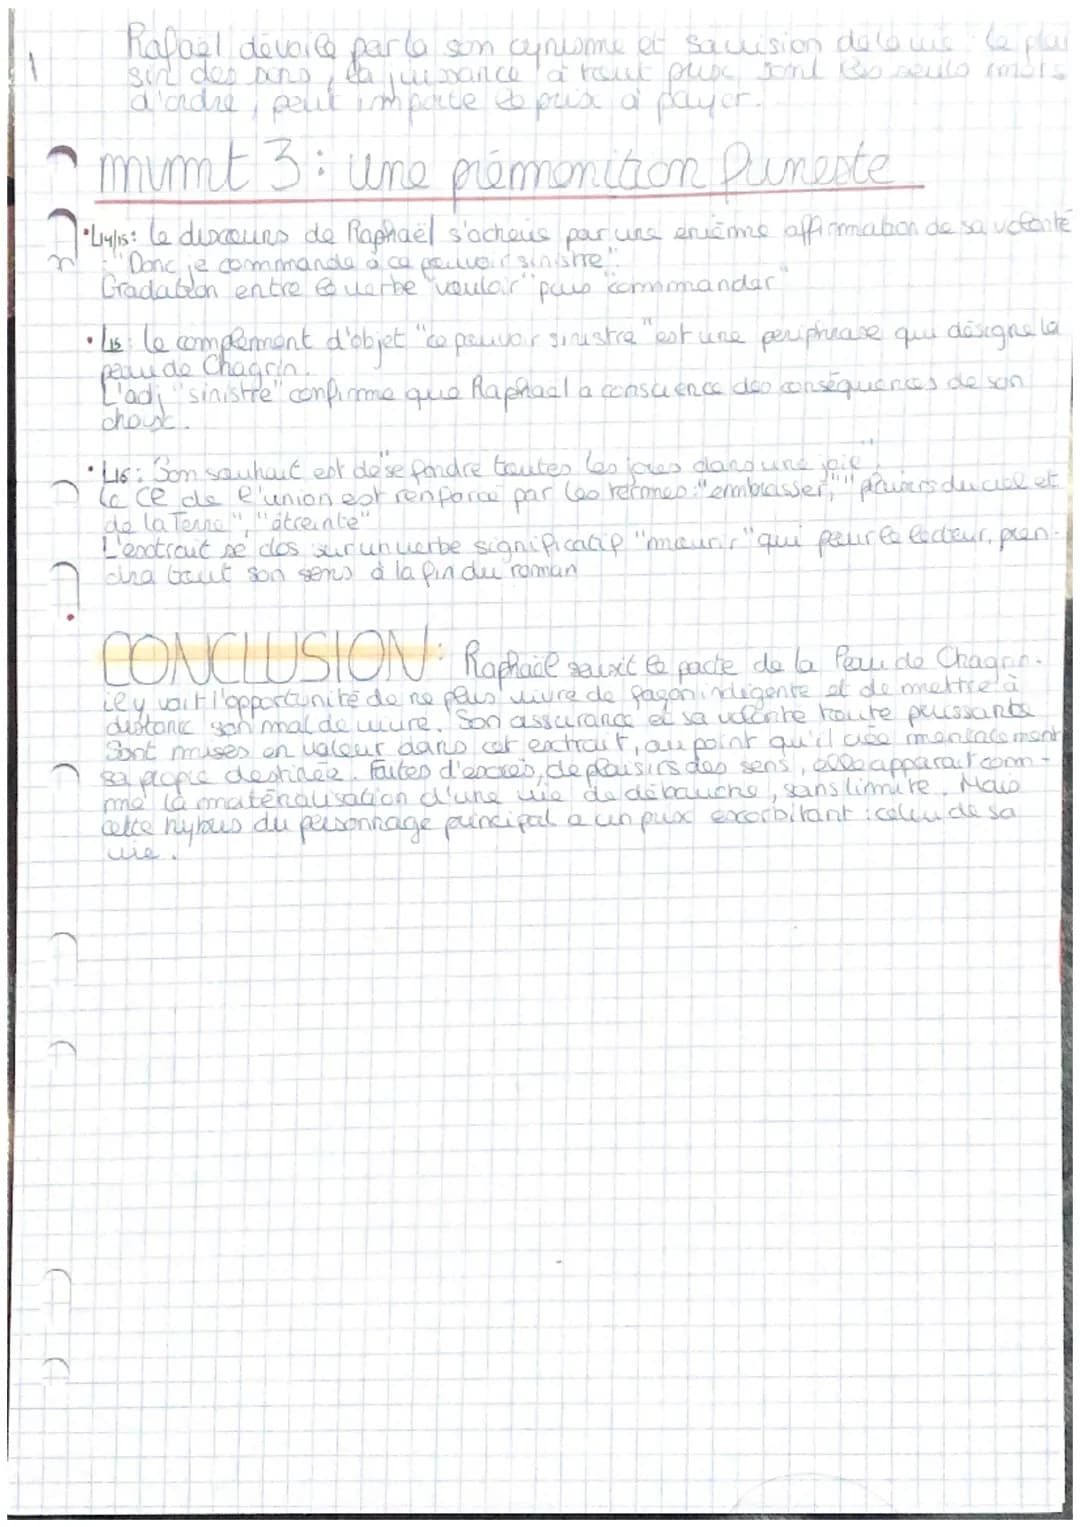 Rafaël dévoile par la son cynisme et sa vision de la vie : le plai
sir des sens, la jouissance à tout prix sont les seuls mots
d'ordre, peut importe le prix à payer.
mvmt 3 : une prémonition funeste
• L14/15 : le discours de Raphaël s'achève par une énième affirmation de sa volonté
: "Donc je commande à ce pouvoir sinistre".
Gradation entre le verbe "vouloir" puis "commmander"
• L15 : le complément d'objet "ce pouvoir sinistre" est une periphrase qui désigne la
peau de Chagrin.
L'adj "sinistre" confirme que Raphaël a conscience des conséquences de son
choix.
• L16 : Som souhait est de "se fondre toutes les joies dans une joie"
le CL de l'union est renforcé par les termes : "emmbrasser", "plaisirs du ciel et
de la Terre", "étreinte"
L'extrait se clos sur un verbe significatif "mourir" qui pour le lecteur, pren-
dra tout son sens à la fin du roman
CONCLUSION : Raphaël saisit le pacte de la Peau de Chagrin.
il y voit l'opportunité de ne plus vivre de façon indigente et de mettre à
distance son mal de vivre. Son assurance et sa volonté toute puissante
Sont mises en valeur dans cet extrait, au point qu'il crée mentalement
sa propre destinée. Faites d'excès, de plaisirs des sens, elle apparait com-
me la matérialisation d'une vie de débauche, sans limite. Mais
cette hybris du personnage principal a un prix exorbitant : celui de sa
vie.